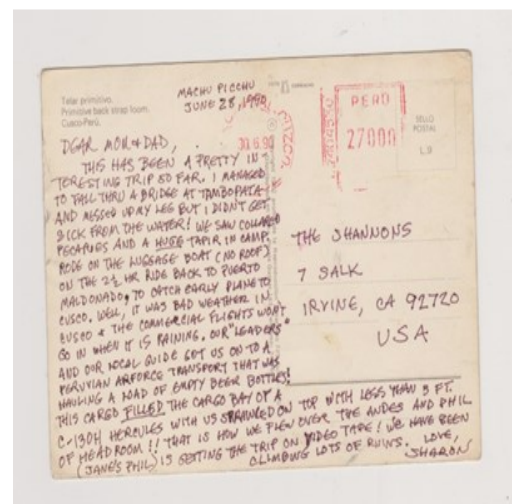 Talar primitivo.
Primitive back strap loom.
Cusco-Perú.
MACHU PICCHU
JUNE 28, 1990
DEAR MOM & DAD,
THIS HAS BEEN A PRETTY IN-
TERESTING TRIP SO FAR. I MANAGED
TO FALL THRU A BRIDGE AT TAMBOPATA
AND MESSED UP MY LEG BUT I DIDN'T GET
SICK FROM THE WATER! WE SAW COLLARED
PECARIES AND A HUGE TAPIR IN CAMP.
RODE ON THE LUGGAGE BOAT (NO ROOF)
ON THE 2½ HR RIDE BACK TO PUERTO
MALDONADO, TO CATCH EARLY PLANE TO
CUSCO. WELL, IT WAS BAD WEATHER IN
CUSCO & THE COMMERCIAL FLIGHTS WON'T
GO IN WHEN IT IS RAINING. OUR "LEADERS"
AND OUR LOCAL GUIDE GOT US ON TO A
PERUVIAN AIRFORCE TRANSPORT THAT WAS
HAULING A LOAD OF EMPTY BEER BOTTLES!
THIS CARGO FILLED THE CARGO BAY OF A
C-130H HERCULES WITH US SPRAWLED ON TOP WITH LESS THAN 3 FT.
OF HEADROOM!! THAT IS HOW WE FLEW OVER THE ANDES AND PHIL
(JANE'S PHIL) IS GETTING THE TRIP ON VIDEO TAPE! WE HAVE BEEN
CLIMBING LOTS OF RUINS. LOVE,
SHARON
PERU
27000
SELLO
POSTAL
THE SHANNONS
7 SALK
IRVINE, CA 92720
USA